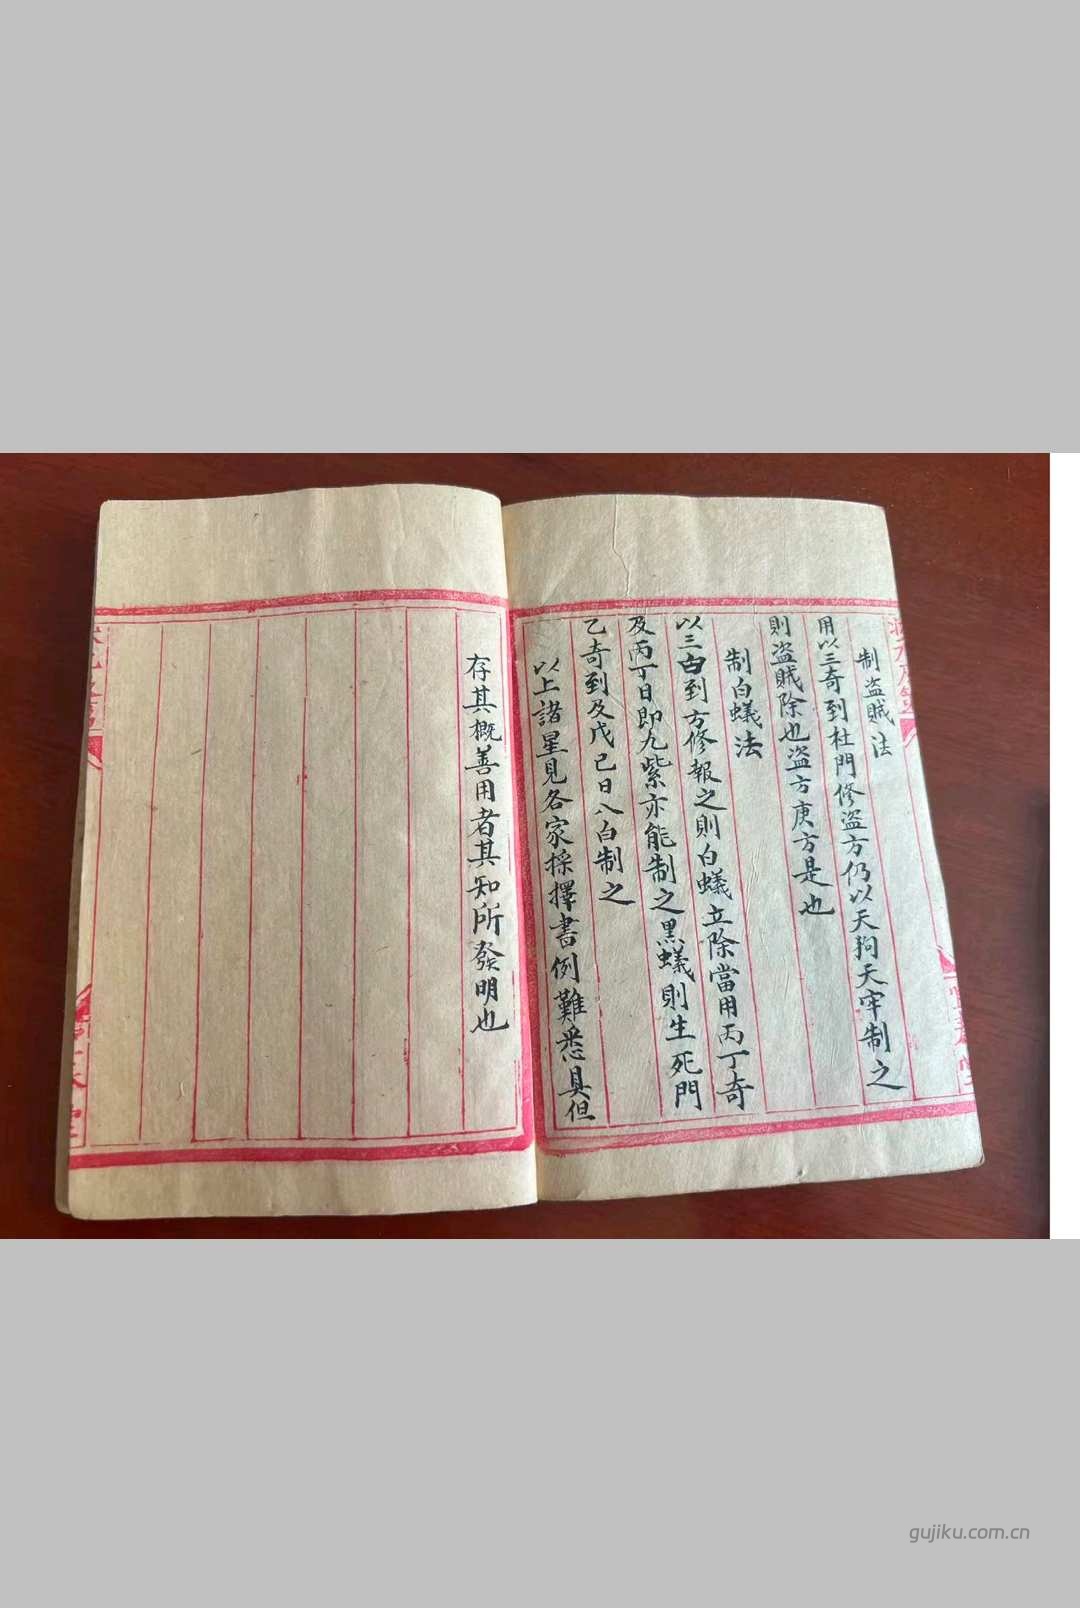 制盜賊法
用以三奇到杜門修盜方仍以天狗天牢制之
則盜賊除也盜方庚方是也
制白蟻法
以三白到方修報之則白蟻立除當用丙丁奇
及丙丁日即九紫亦能制之黑蟻則生死門
乙奇到及戊己日八白制之
以上諸星見各家採擇書例難悉具但
存其概善用者其知所發明也
gujiku.com.cn